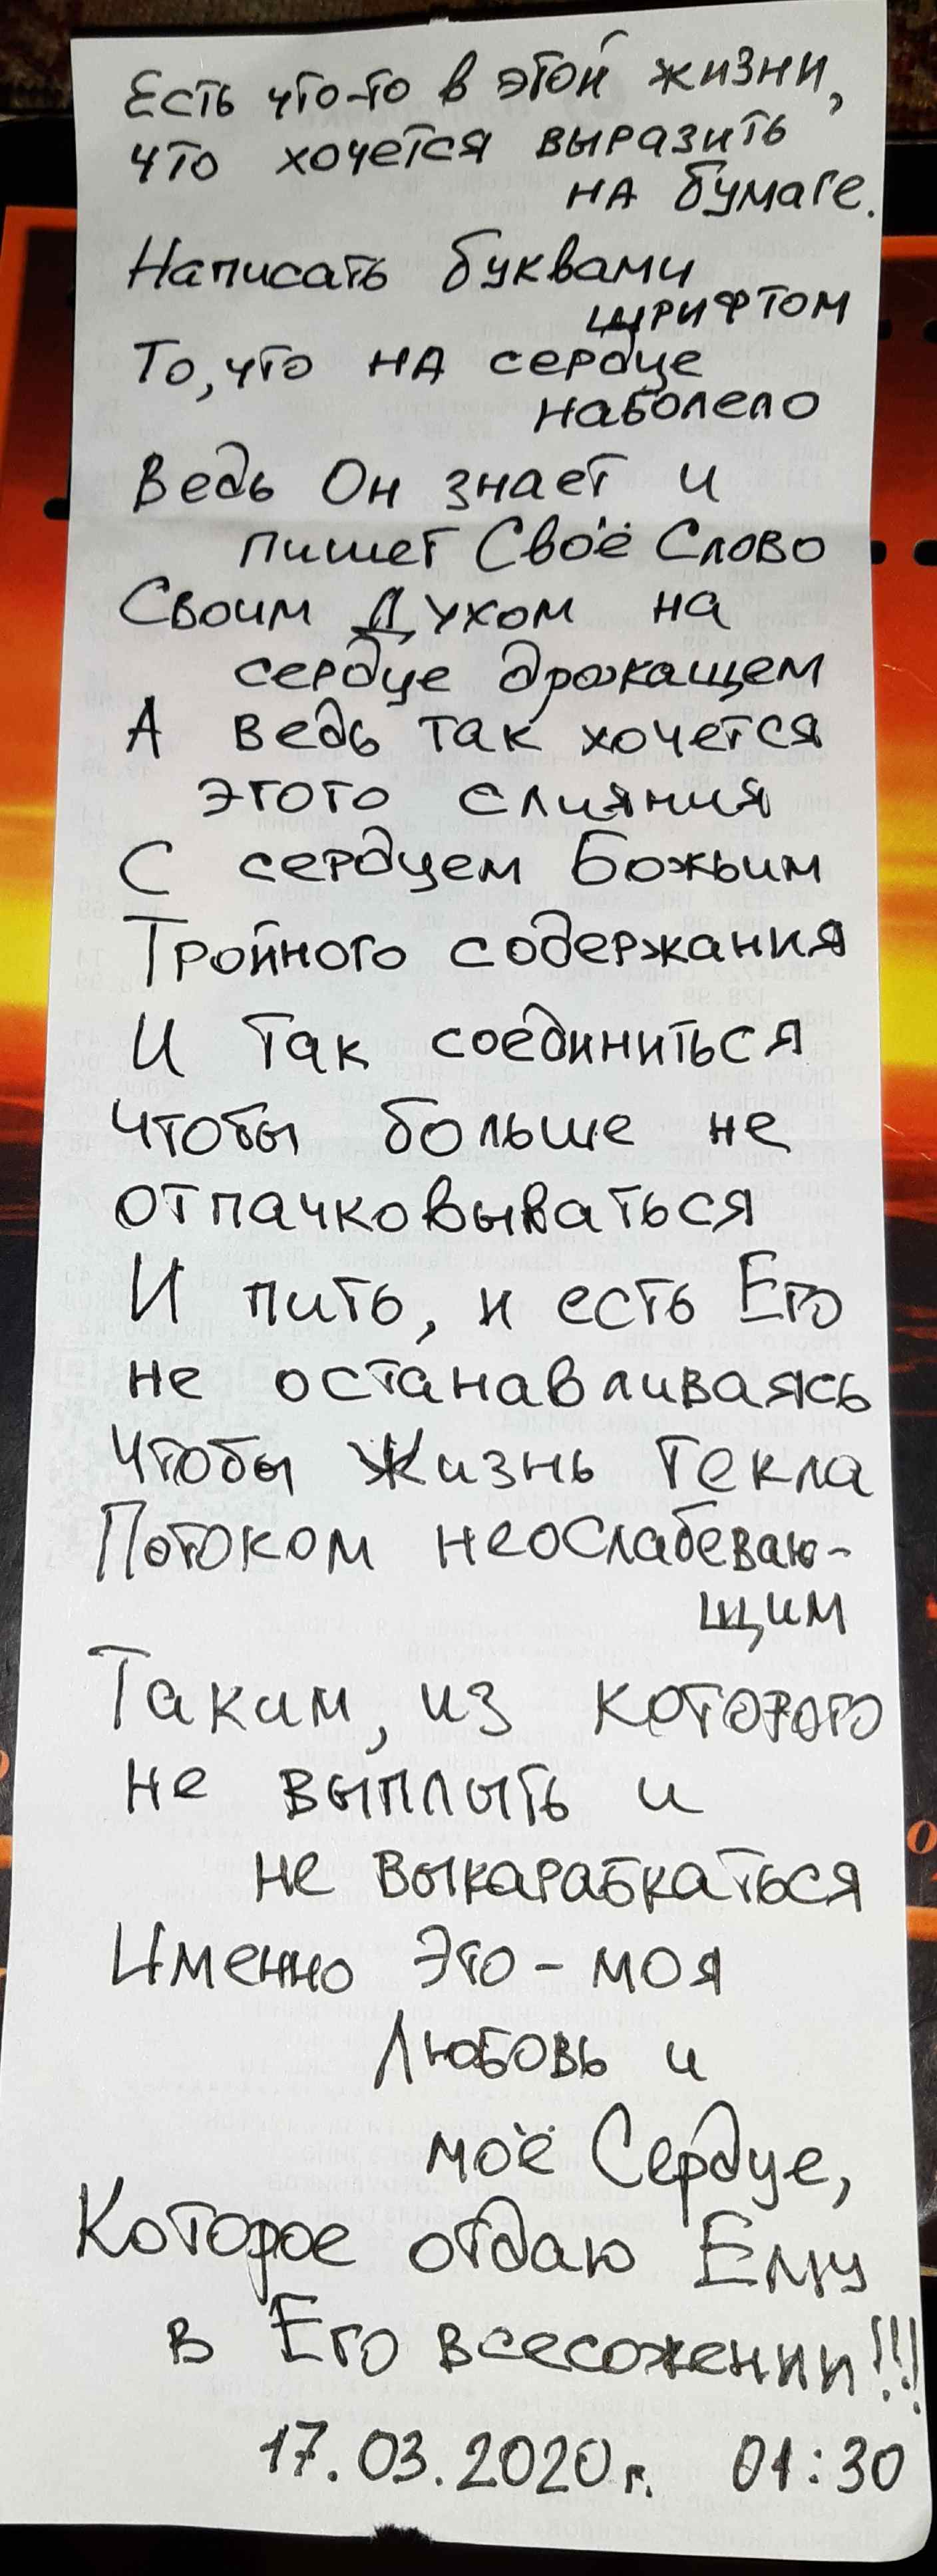 Есть что-то в этой жизни,
что хочется выразить
на бумаге.
Написать буквами
шрифтом
То, что на сердце
наболело
Ведь Он знает и
пишет Своё Слово
Своим Духом на
сердце дрожащем
А ведь так хочется
этого слияния
С сердцем Божьим
Тройного содержания
И так соединиться
чтобы больше не
отпачковываться
И пить, и есть Его
не останавливаясь
Чтобы Жизнь текла
Потоком неослабеваю-
щим
Таким, из которого
не выплыть и
не выкарабкаться
Именно Это - моя
Любовь и
моё Сердце,
Которое отдаю Ему
в Его всесожении!!!
17.03.2020г. 01:30